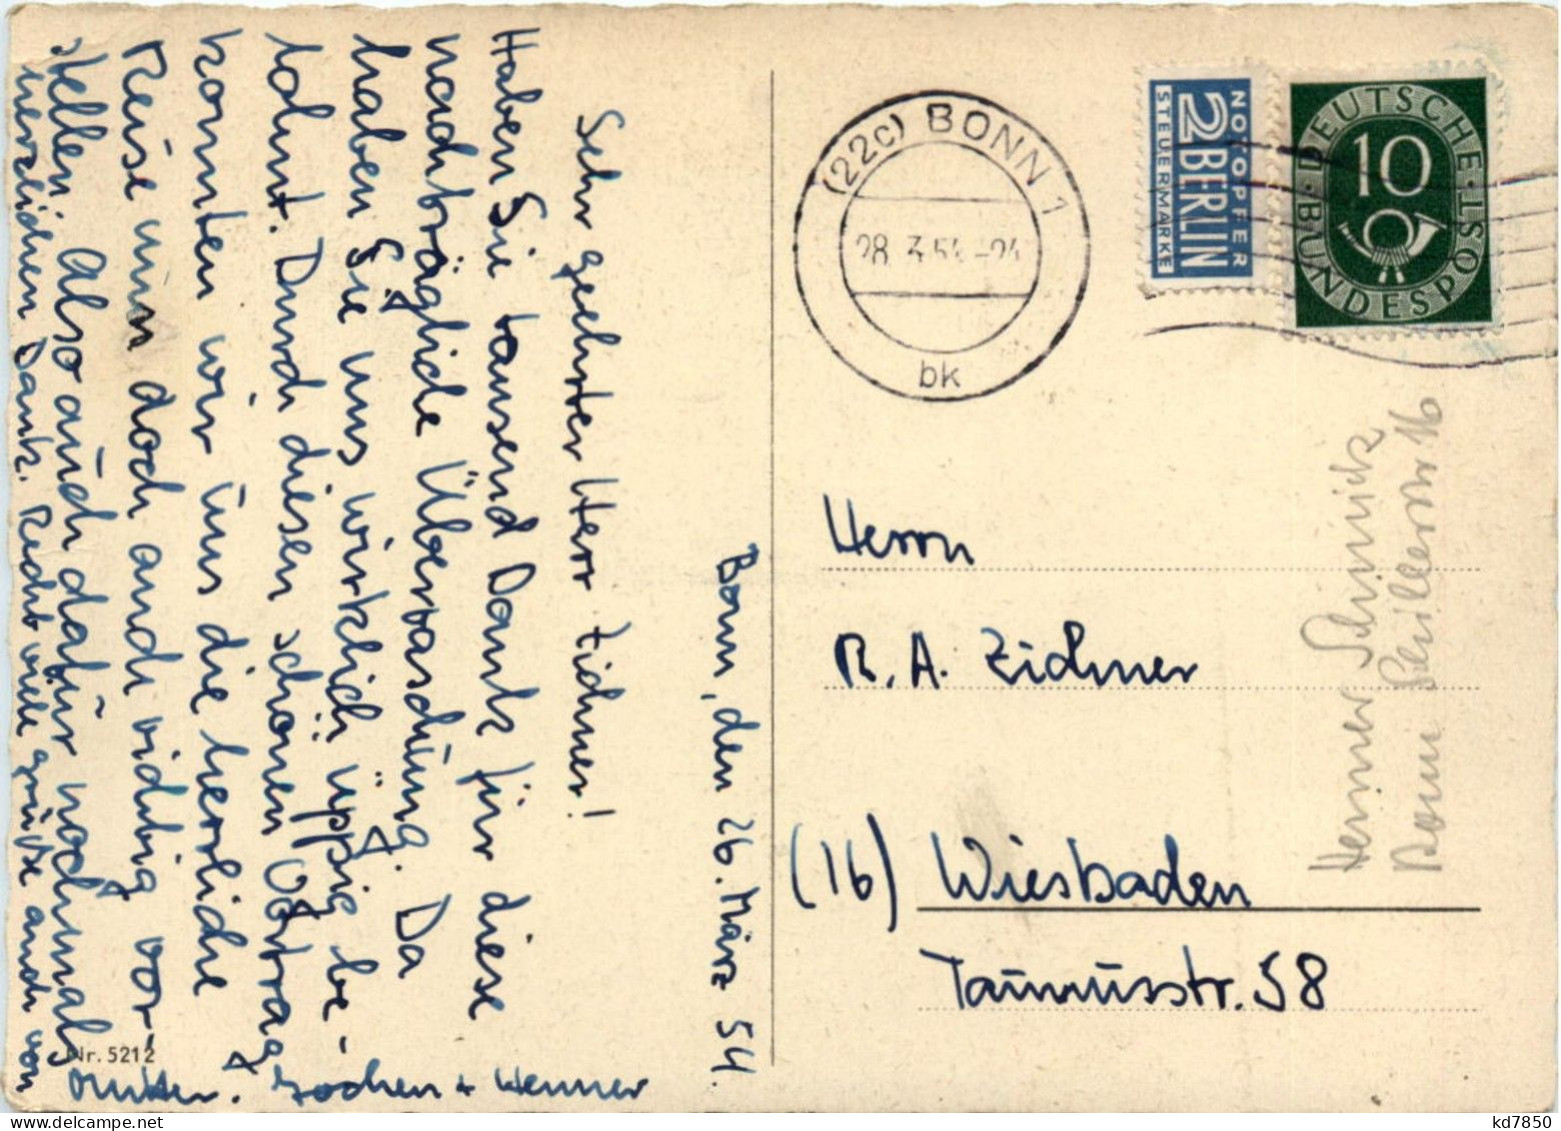 Bonn, den 26. März 54.
Sehr geehrter Herr Zichner!
Haben Sie tausend Dank für diese
nachträgliche Überraschung. Da
haben Sie uns wirklich üppig be-
lohnt. Durch diesen schönen Vortrag
konnten wir uns die herrliche
Reise nun doch auch richtig vor-
stellen. Also auch dafür nochmals
herzlichen Dank. Recht viele Grüße auch von
Mutter. Jochen + Henner
Nr. 5212
(22c) BONN 1
28. 3. 54. -24
bk
NOTOPFER
2 BERLIN
STEUERMARKE
DEUTSCHE BUNDESPOST
10
Herrn
R. A. Zichner
(16) Wiesbaden
Taunusstr. 58
Henner
Bonn 16
kd7850